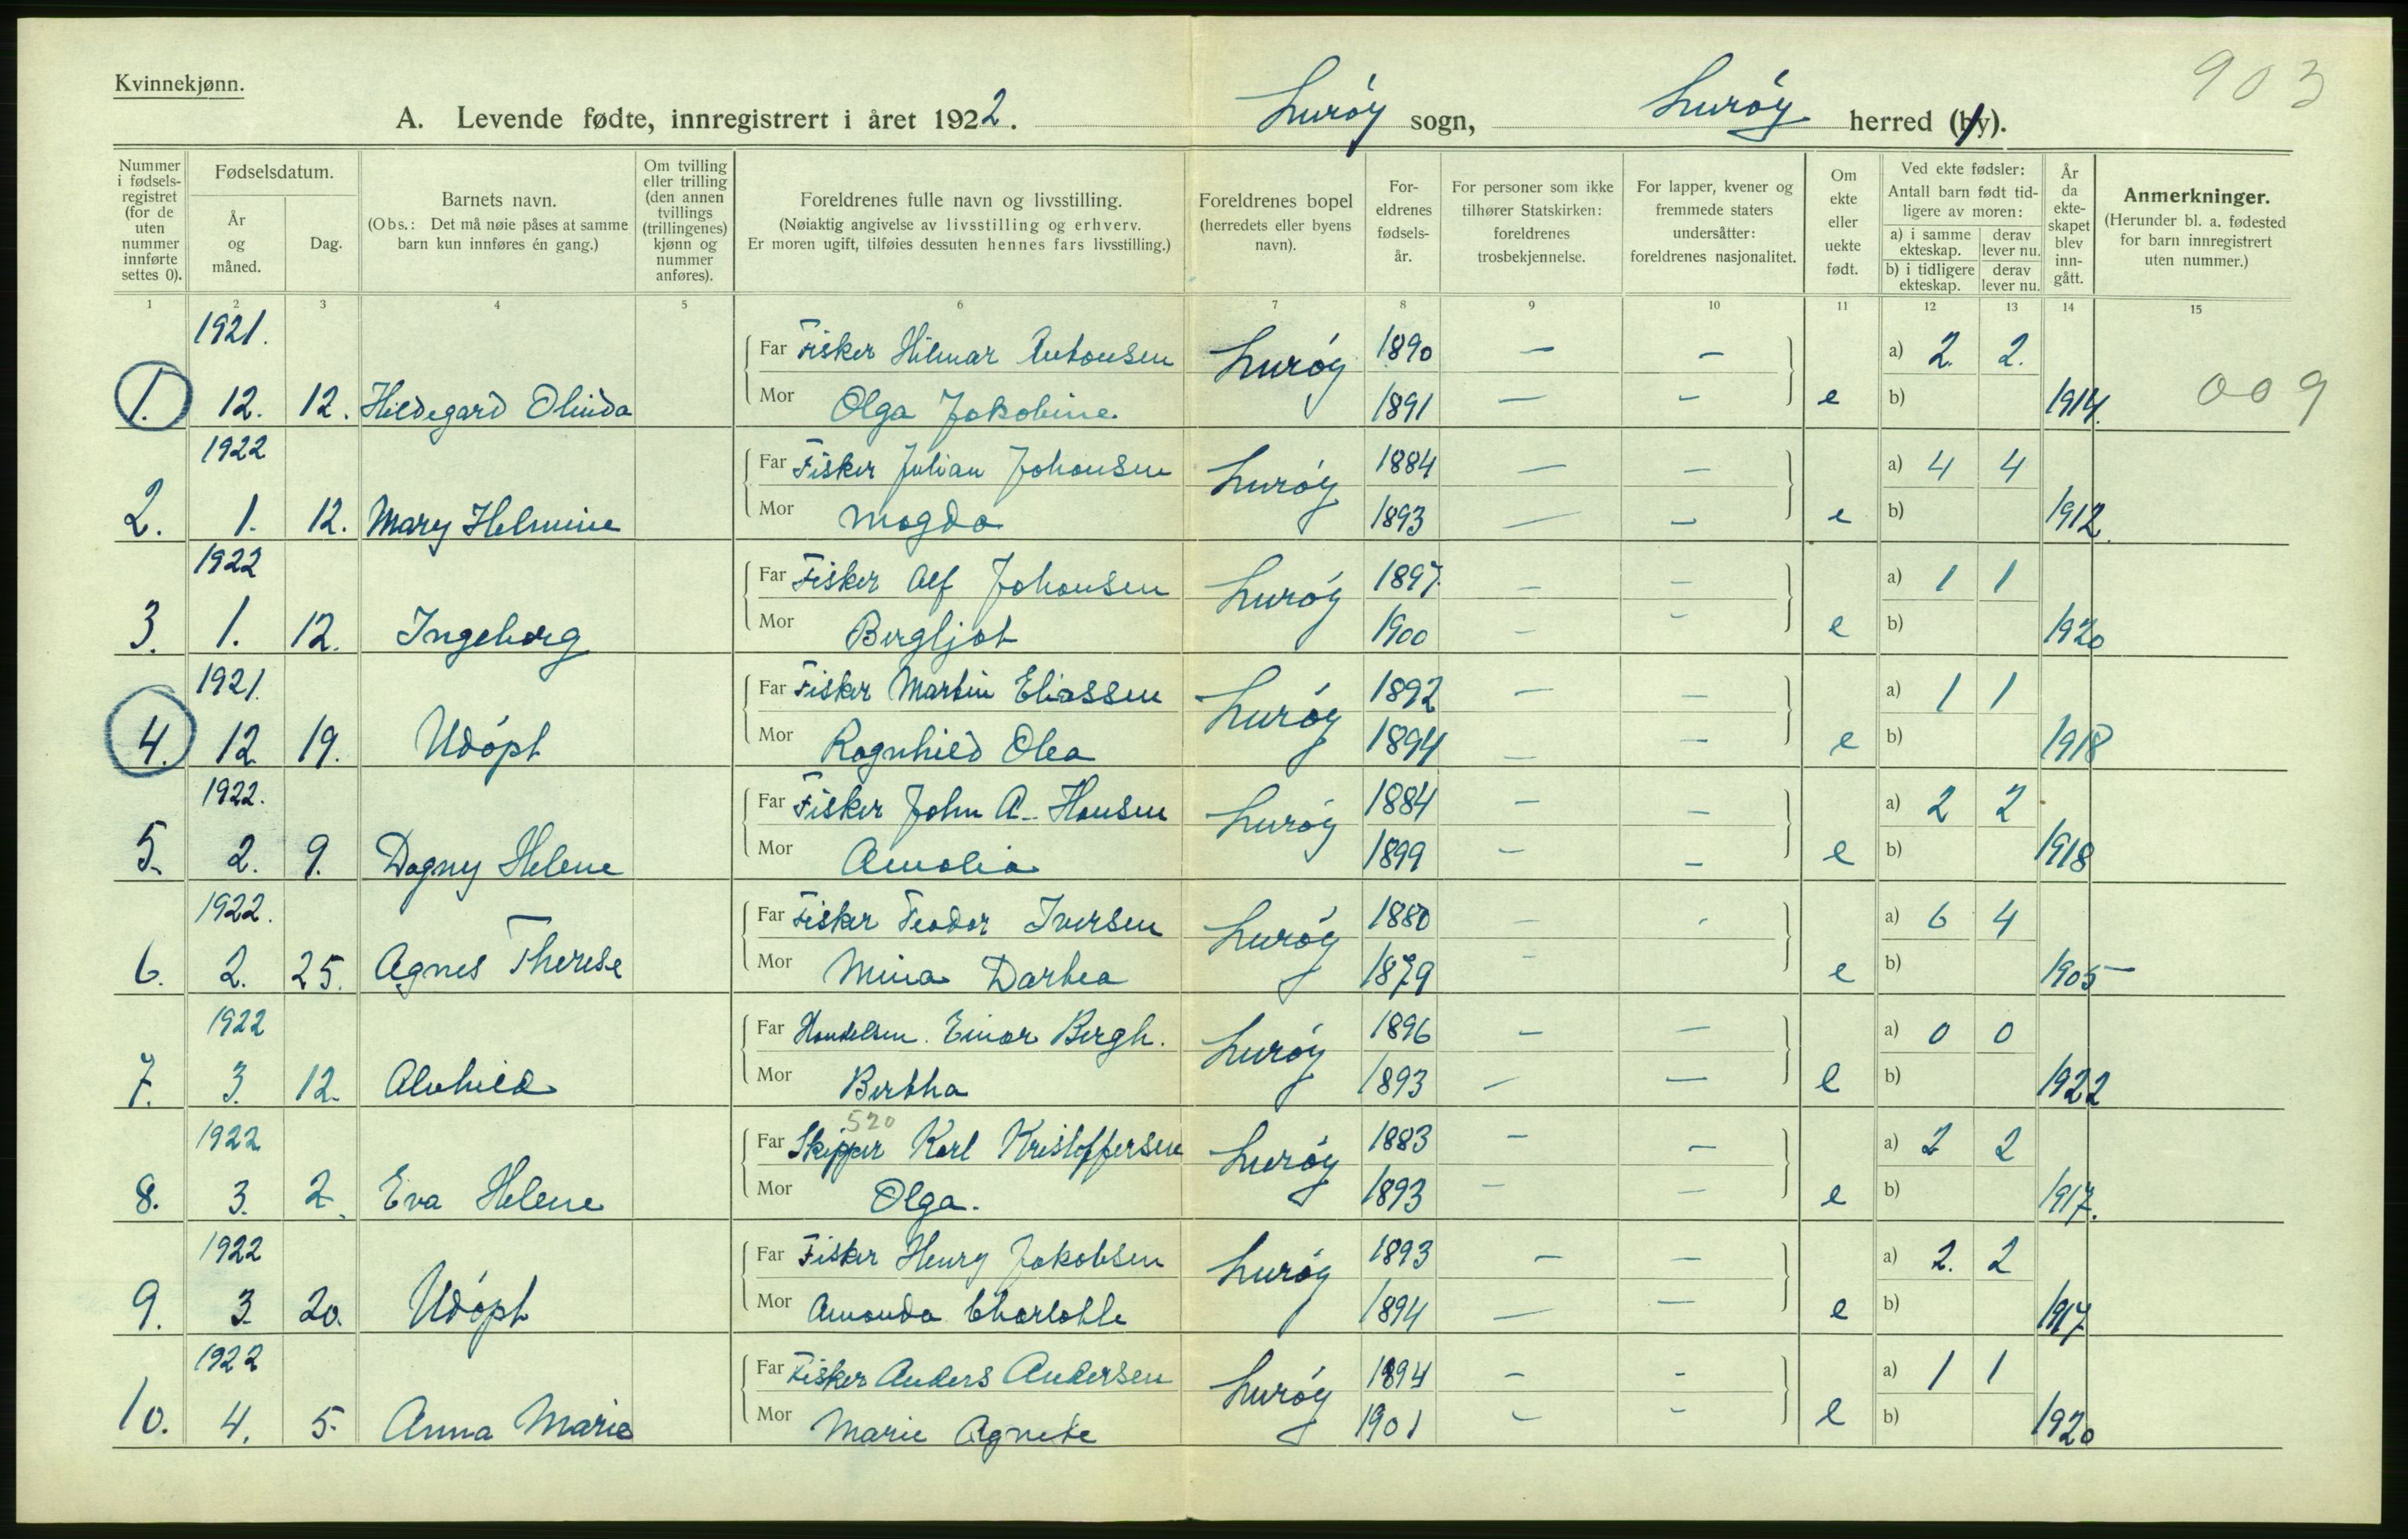 903
Kvinnekjønn.
A. Levende fødte, innregistrert i året 1922. Lurøy sogn, Lurøy herred (by).
Nummer i fødselsregistret (for de uten nummer innførte settes 0).
Fødselsdatum.
År og måned.
Dag.
Barnets navn.
(Obs.: Det må nøie påses at samme barn kun innføres én gang.)
Om tvilling eller trilling (den annen tvillings (trillingenes) kjønn og nummer anføres).
Foreldrenes fulle navn og livsstilling.
(Nøiaktig angivelse av livsstilling og erhverv.
Er moren ugift, tilføies dessuten hennes fars livsstilling.)
Foreldrenes bopel
(herredets eller byens navn).
Foreldrenes fødselsår.
For personer som ikke tilhører Statskirken: foreldrenes trosbekjennelse.
For lapper, kvener og fremmede staters undersåtter: foreldrenes nasjonalitet.
Om ekte eller uekte født.
Ved ekte fødsler:
Antall barn født tidligere av moren:
a) i samme ekteskap. derav lever nu.
b) i tidligere ekteskap. derav lever nu.
År da ekteskapet blev inngått.
Anmerkninger.
(Herunder bl. a. fødested for barn innregistrert uten nummer.)
1 2 3 4 5 6 7 8 9 10 11 12 13 14 15
1921. Far Fisker Hilmar Antonsen Lurøy 1890 — — a) 2 2.
1. 12. 12. Hildegard Olinda Mor Olga Jakobine 1891 — — e b) 1914. 009
1922 Far Fisker Julian Johansen Lurøy 1884 — — a) 4 4
2. 1. 12. Mary Helmine Mor Magda 1893 — — e b) 1912.
1922 Far Fisker Alf Johansen Lurøy 1897 — — a) 1 1
3. 1. 12. Ingeborg Mor Bergljot 1900 — — e b) 1920
1921. Far Fisker Martin Eliassen Lurøy 1892 — — a) 1 1
4. 12 19. Udøpt Mor Ragnhild Olea 1894 — — e b) 1918
1922. Far Fisker John A. Hansen Lurøy 1884 — — a) 2 2
5. 2. 9. Dagny Helene Mor Amalia 1899 — — e b) 1918
1922. Far Fisker Teodor Iversen Lurøy 1880 — — a) 6 4
6. 2. 25. Agnes Therese Mor Mina Dartea 1879 — e b) 1905
1922 Far Handelsm. Einar Bergh. Lurøy 1896 — — a) 0 0
7. 3. 12. Alvhild Mor Bertha 1893 — — e b) 1922
520
1922 Far Skipper Karl Kristoffersen Lurøy 1883 — — a) 2 2
8. 3. 2. Eva Helene Mor Olga. 1893 — — e b) 1917.
1922 Far Fisker Henry Jakobsen Lurøy 1893 — — a) 2. 2
9. 3. 20. Udøpt Mor Amanda Charlotte 1894 — — e b) 1917
1922 Far Fisker Anders Andersen Lurøy 1894 — — a) 1 1
10. 4. 5. Anna Marie Mor Marie Agnete 1901 — — e b) 1920